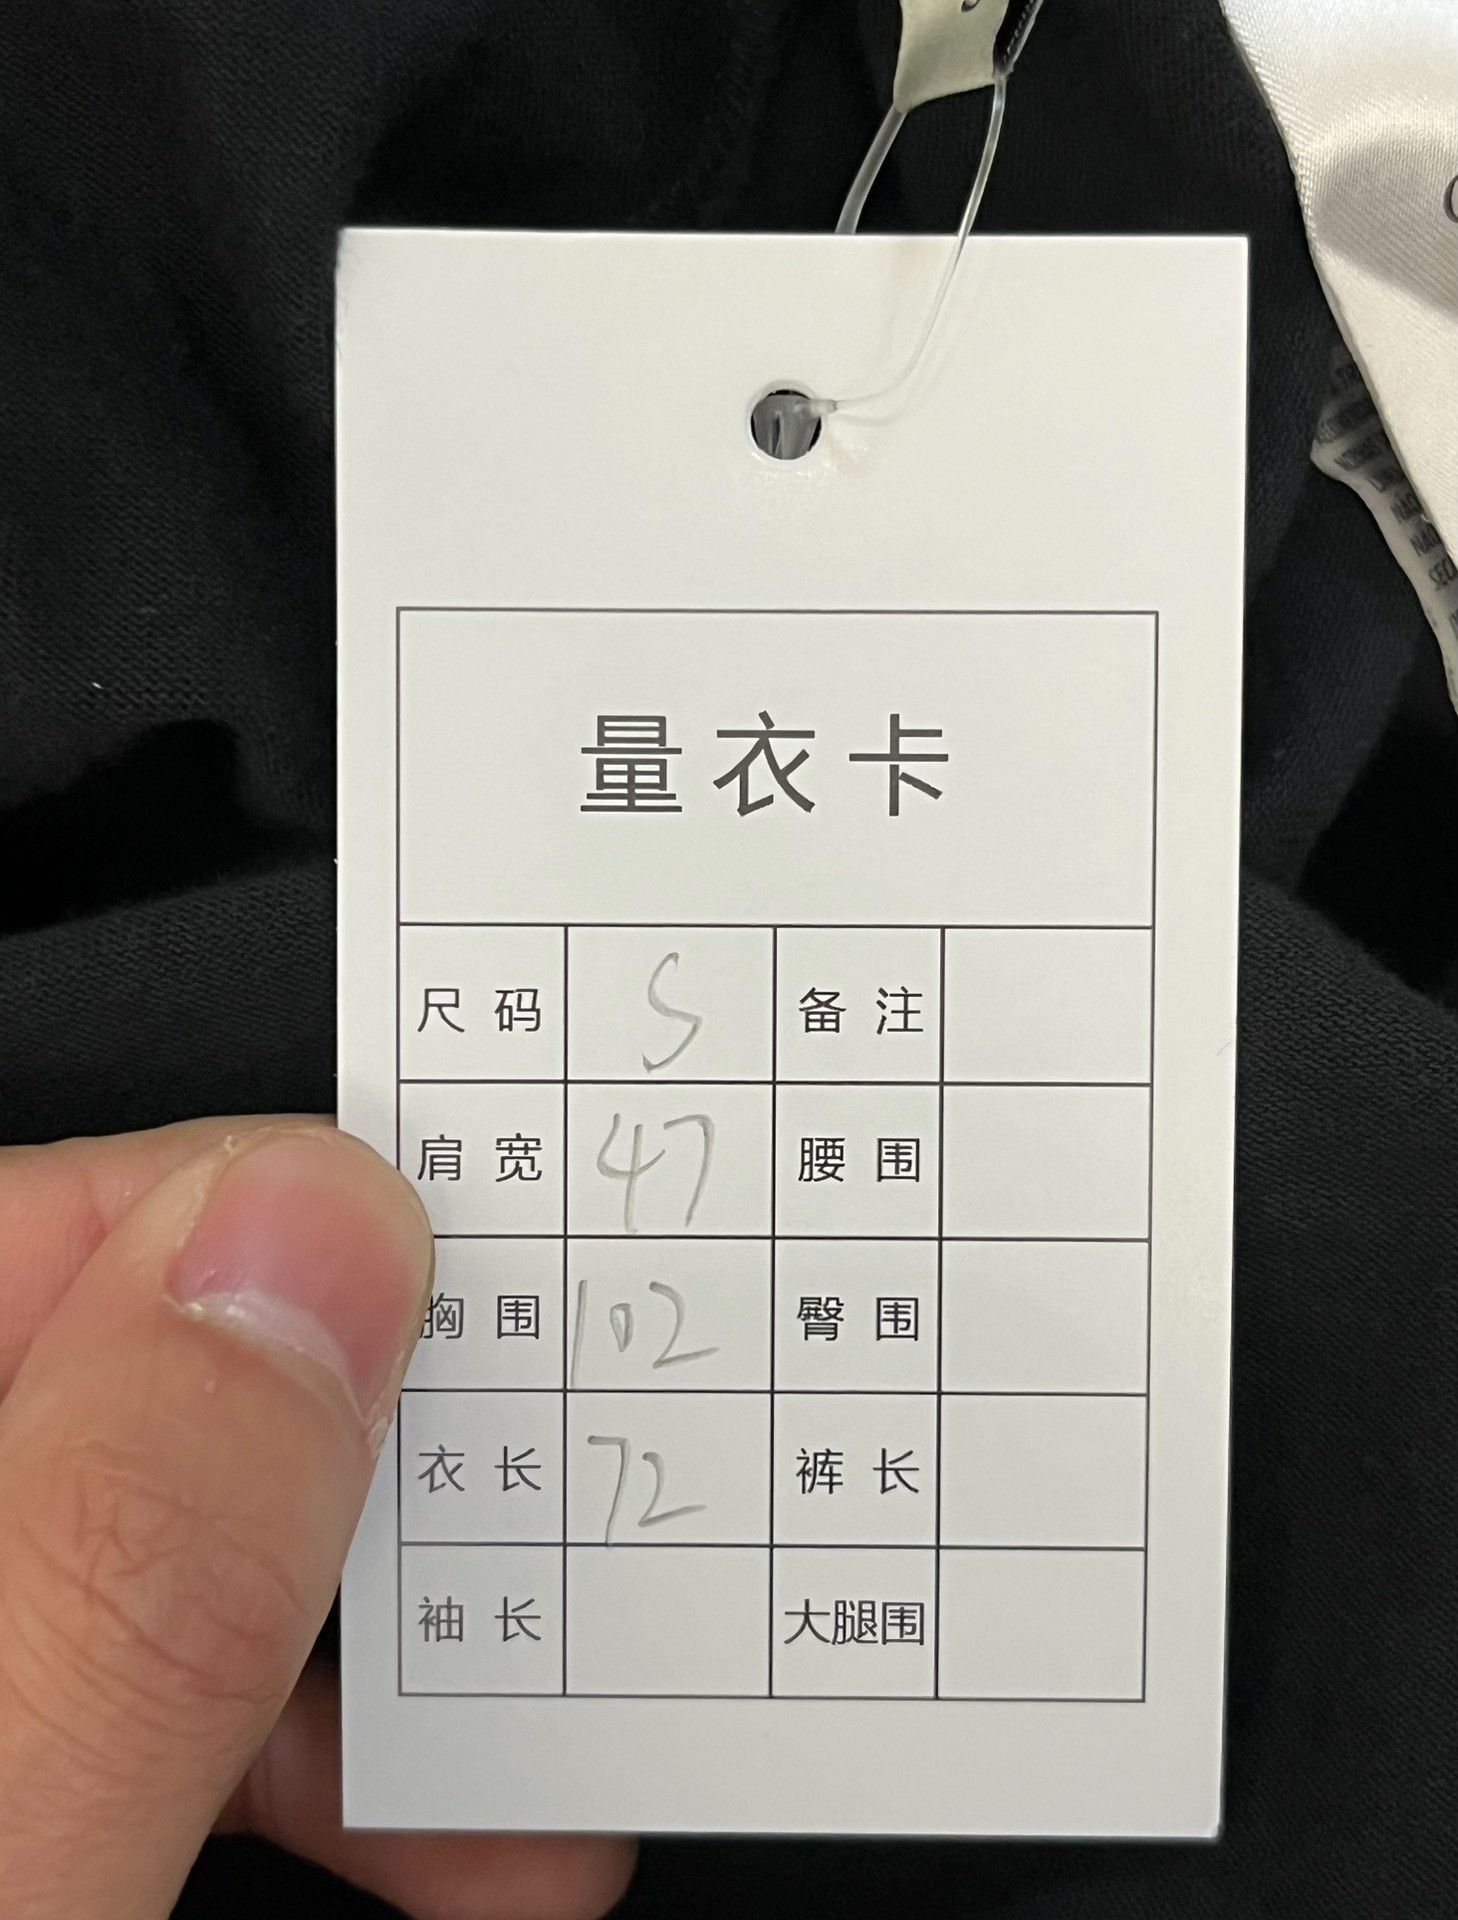 量衣卡
尺码 S 备注
肩宽 47 腰围
胸围 102 臀围
衣长 72 裤长
袖长 大腿围